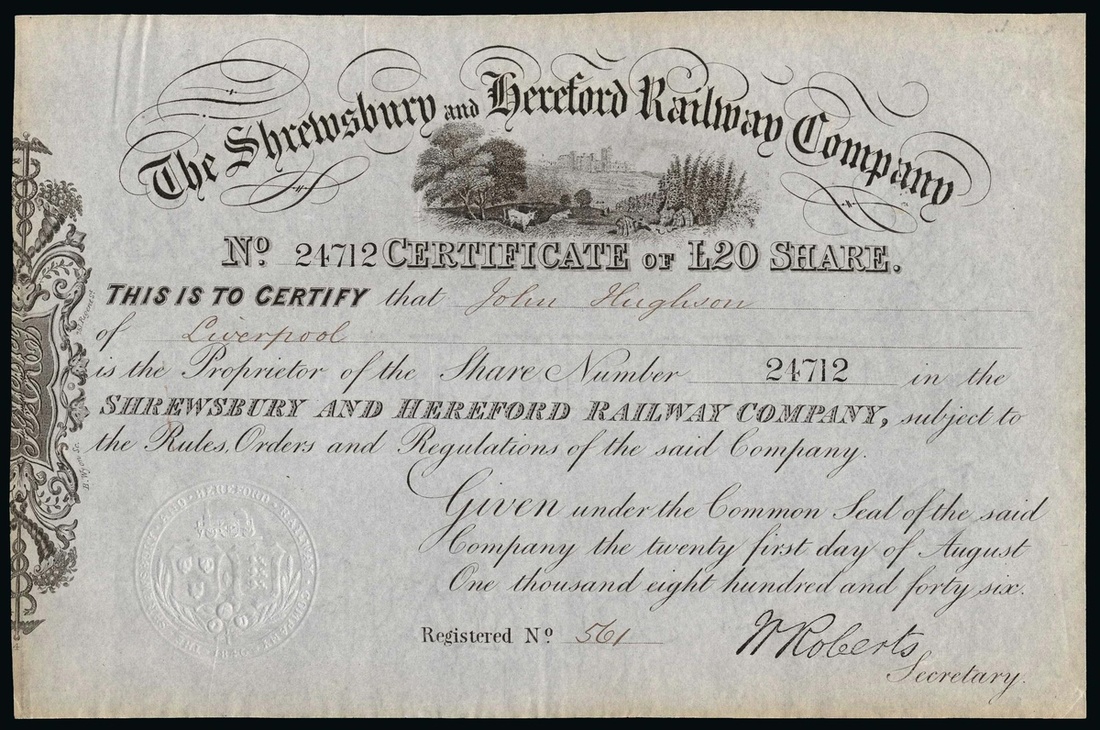 The Shrewsbury and Hereford Railway Company
No. 24712 CERTIFICATE OF £20 SHARE.
THIS IS TO CERTIFY that John Hughson
of Liverpool
is the Proprietor of the Share Number 24712 in the
SHREWSBURY AND HEREFORD RAILWAY COMPANY, subject to
the Rules, Orders and Regulations of the said Company.
Given under the Common Seal of the said
Company the twenty first day of August
One thousand eight hundred and forty six.
Registered No. 561
W Roberts
Secretary.
THE SHREWSBURY AND HEREFORD RAILWAY COMPANY 1846